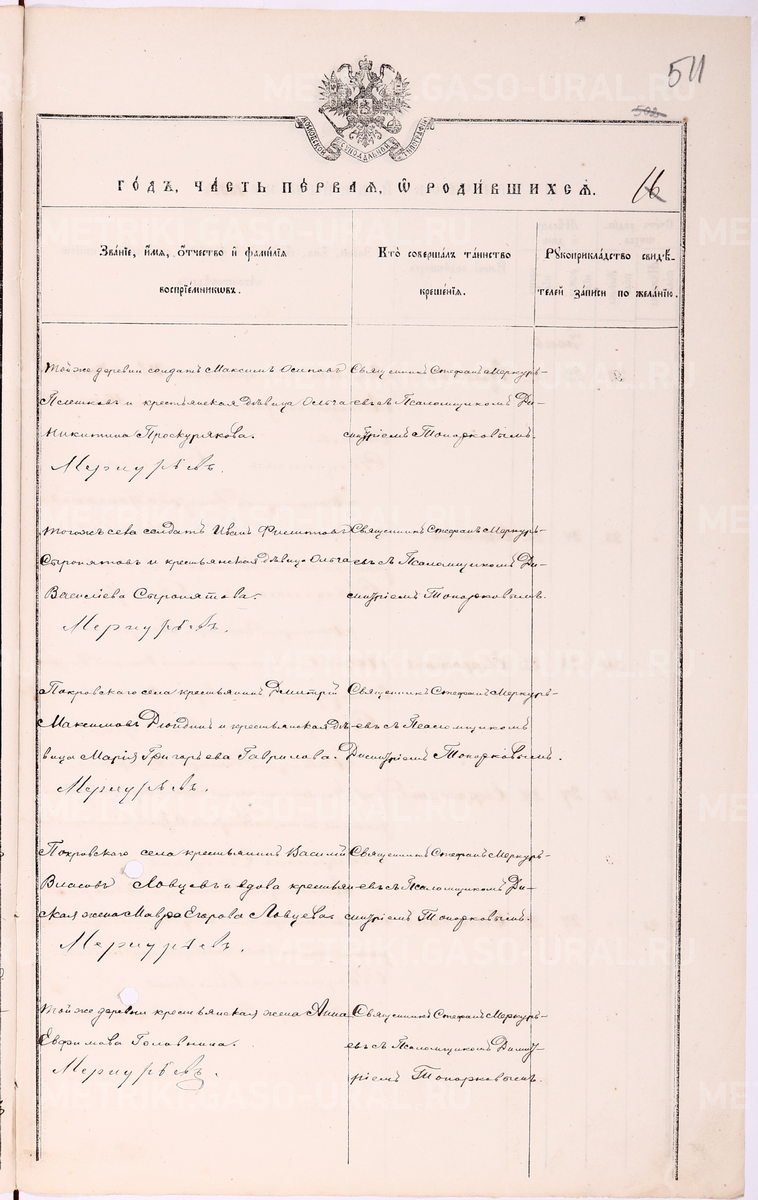 511
502
МОСКОВСКОЙ СѴНОДАЛЬНОЙ ТИПОГРАФІИ
ГОДЪ, ЧАСТЬ ПЕРВАЯ, Ѡ РОДИВШИХСЯ. 16
Званіе, имя, отчество и фамилія
воспріемниковъ.
Кто совершалъ таинство
крещенія.
Рукоприкладство свидѣ-
телей записи по желанію.
Той же деревни солдатъ Максимъ Осиповъ
и крестьянская дѣвица Ольга
Никитина Проскурякова.
Меркурьевъ.
Священникъ Стефанъ Меркурь-
евъ съ Псаломщикомъ Ди-
митріемъ Топорковымъ.
Тогожъ села солдатъ Иванъ Филиповъ
Старопятовъ и крестьянская дѣвица Ольга
Василіева Старопятова.
Меркурьевъ.
Священникъ Стефанъ Меркурь-
евъ съ Псаломщикомъ Ди-
митріемъ Топорковымъ.
Покровскаго села крестьянинъ Димитрій
Максимовъ и крестьянская дѣ-
вица Марія Григорьева Гаврилова.
Меркурьевъ.
Священникъ Стефанъ Меркурь-
евъ съ Псаломщикомъ
Димитріемъ Топорковымъ.
Покровскаго села крестьянинъ Василій
Власовъ Ловцевъ и вдова крестьян
ская жена Мавра Егорова Ловцева.
Меркурьевъ.
Священникъ Стефанъ Меркурь-
евъ съ Псаломщикомъ Ди-
митріемъ Топорковымъ.
Той же деревни крестьянская жена Анна
Евфимова Головнина.
Меркурьевъ.
Священникъ Стефанъ Меркурь-
евъ съ Псаломщикомъ Димит-
ріемъ Топорковымъ.
METRIKI.GASO-URAL.RU